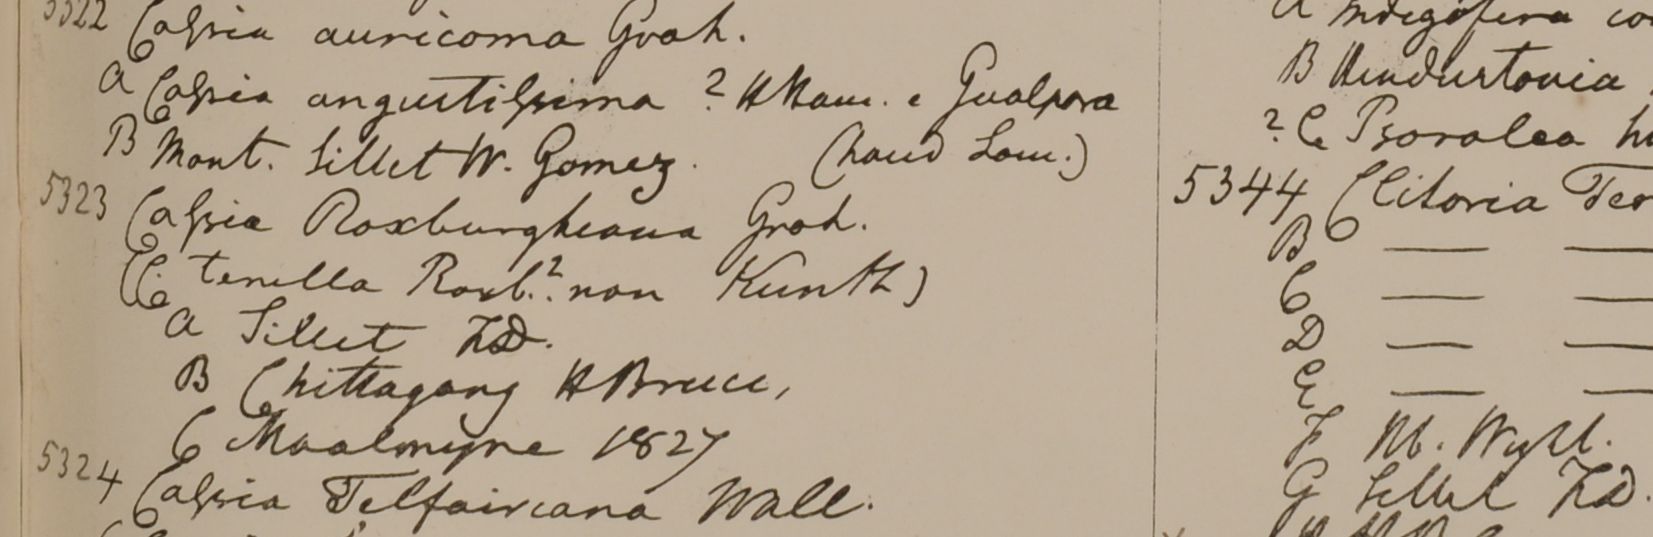 5322 Caſsia auricoma Grah.
A Caſsia angustiſsima ? HHam. e Gualpara
B Mont. Sillet W. Gomez. (haud Lam.)
5323 Caſsia Roxburgheana Grah.
(C. tenella Roxb.? non Kunth)
A Sillet FD.
B Chittagong HBruce,
C Moalmyne 1827
5324 Caſsia Telfaireana Wall.
A Indigofera
B Hindustonia
? C Psoralea
5344 Clitoria
B — —
C — —
D — —
E — —
F
G Sillet FD.